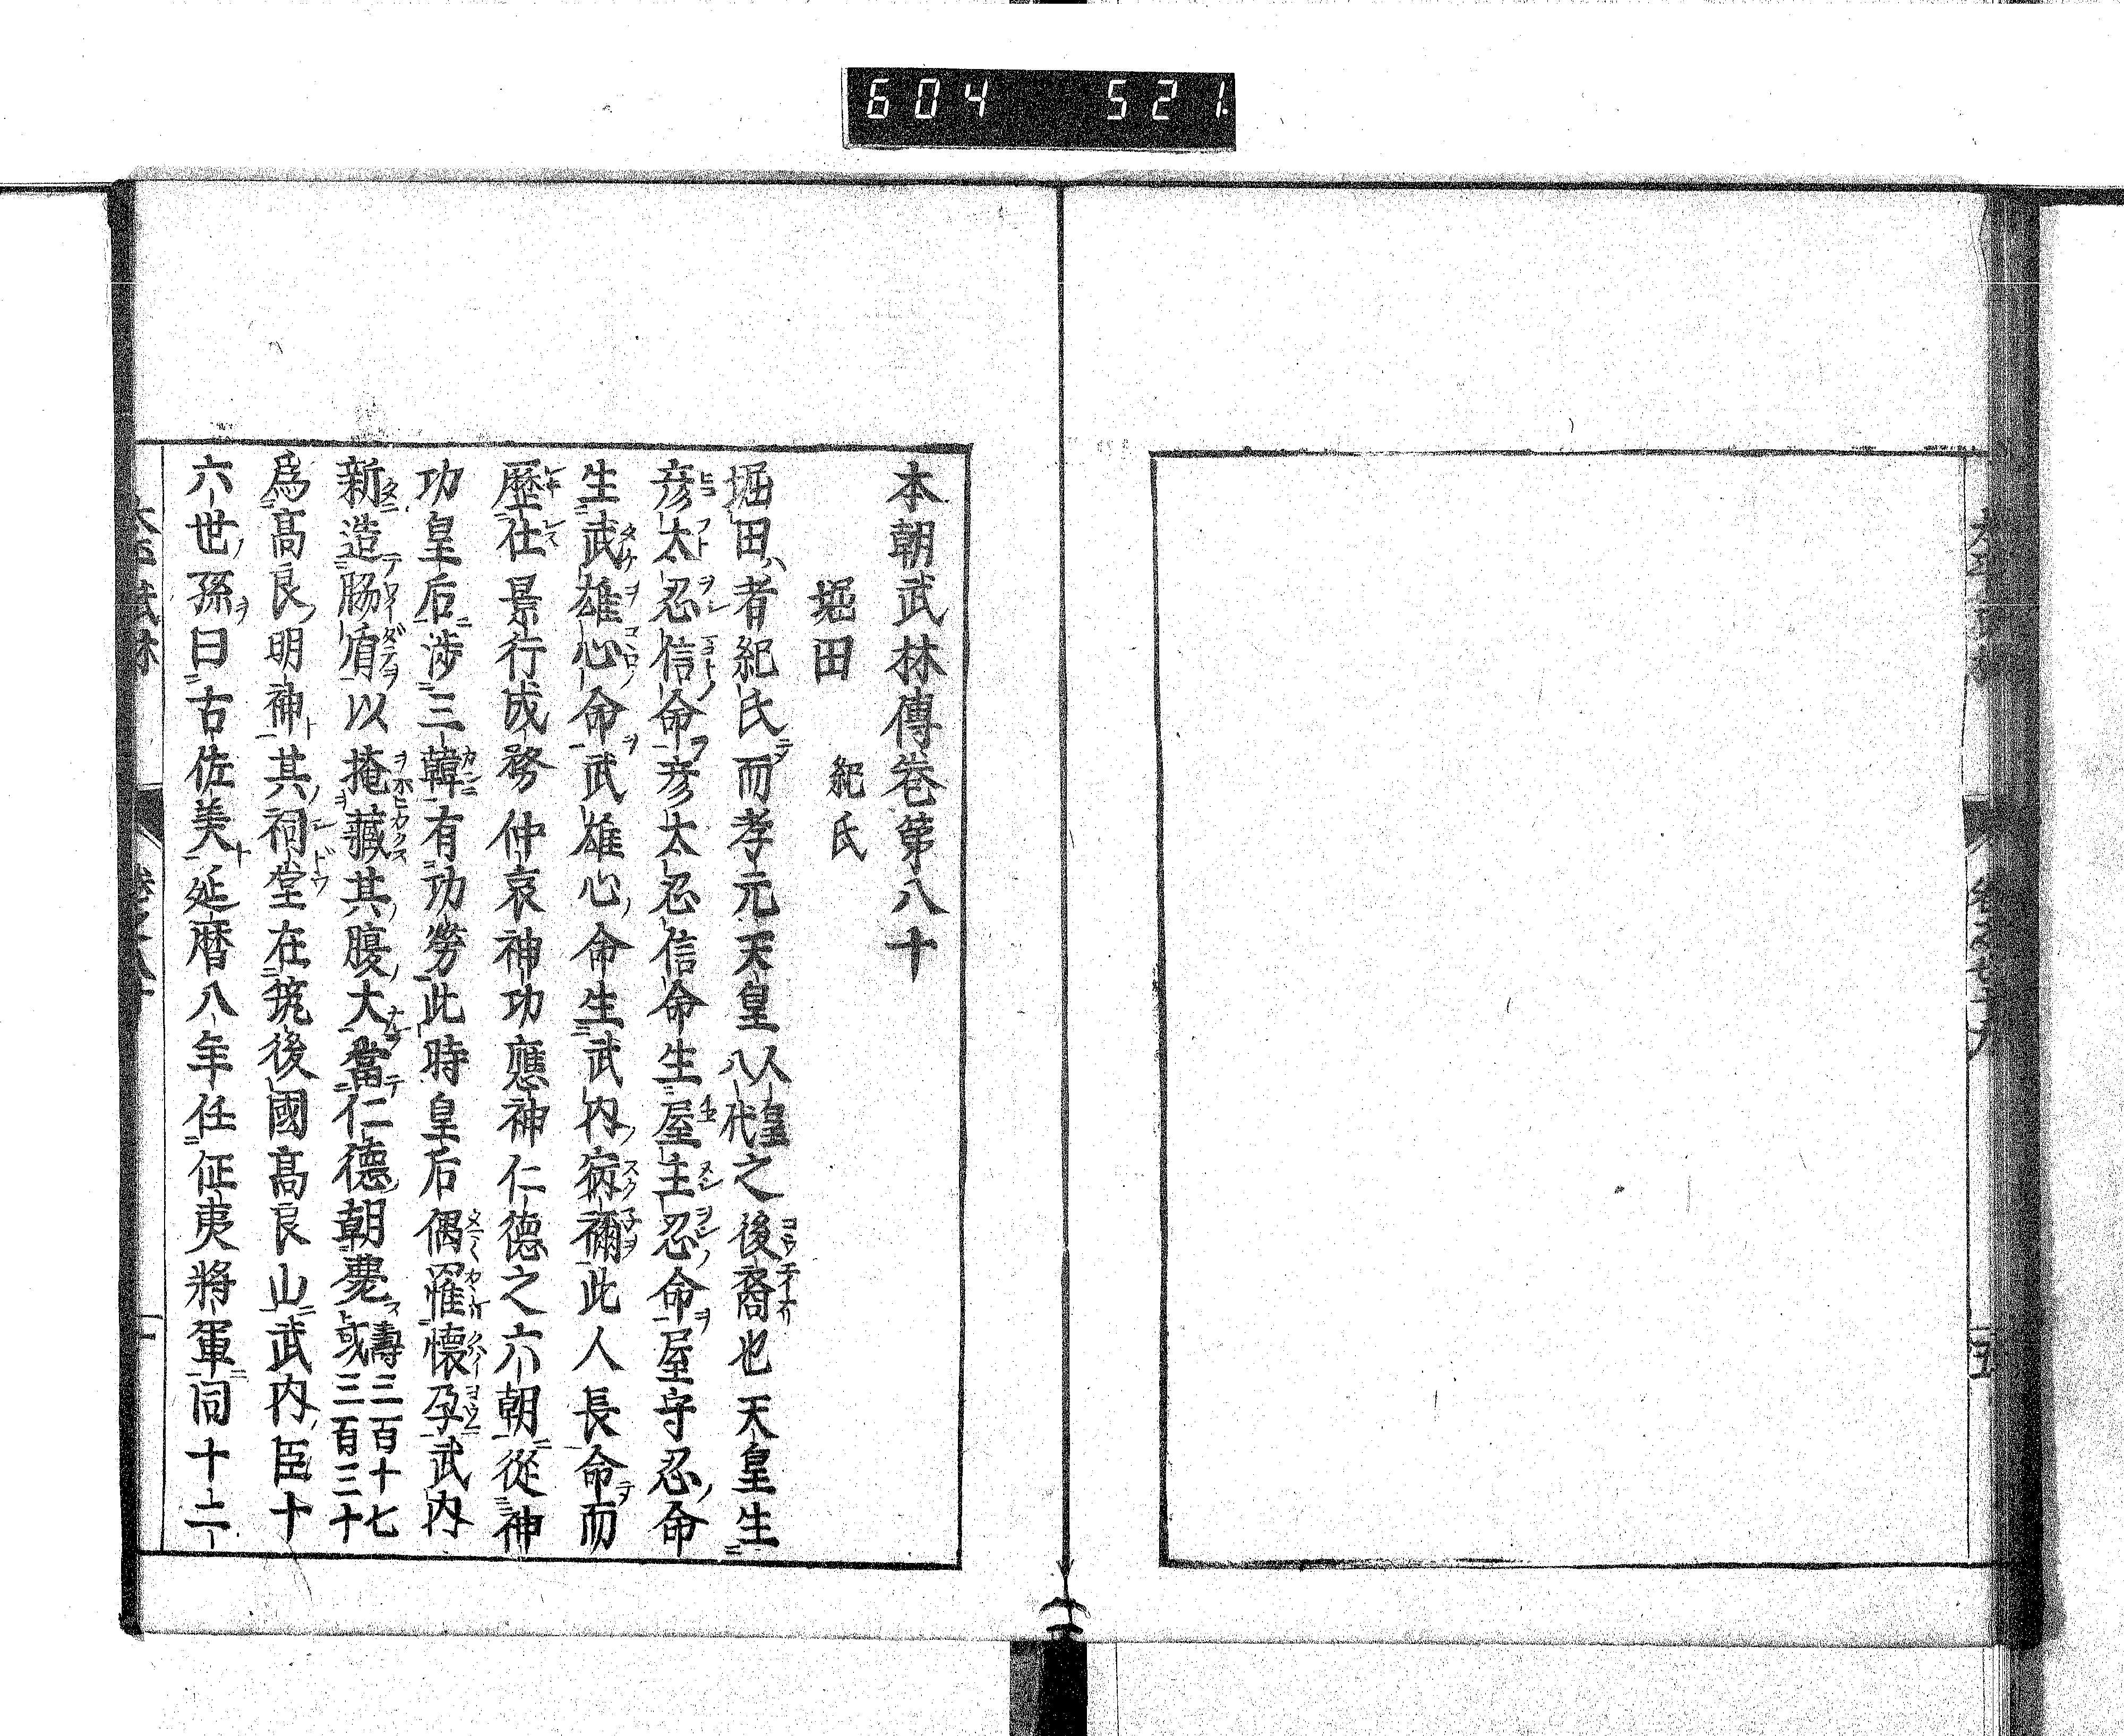 604 521.
本朝武林傳卷第八十
堀田 紀氏
堀田者紀氏而孝元天皇人皇八代之後裔也天皇生
彦太忍信命彦太忍信命生屋主忍命屋守忍命
生武雄心命武雄心命生武内宿禰此人長命而
歷仕景行成務仲哀神功應神仁德之六朝從神
功皇后渉三韓有功勞此時皇后偶罹懷孕武内
新造肠盾以掩藏其腹大當仁德朝薨壽三百十七或三百三十
爲高良明神其祠堂在筑後國高良山武内臣十
六世孫曰古佐美延暦八年任征夷將軍同十二